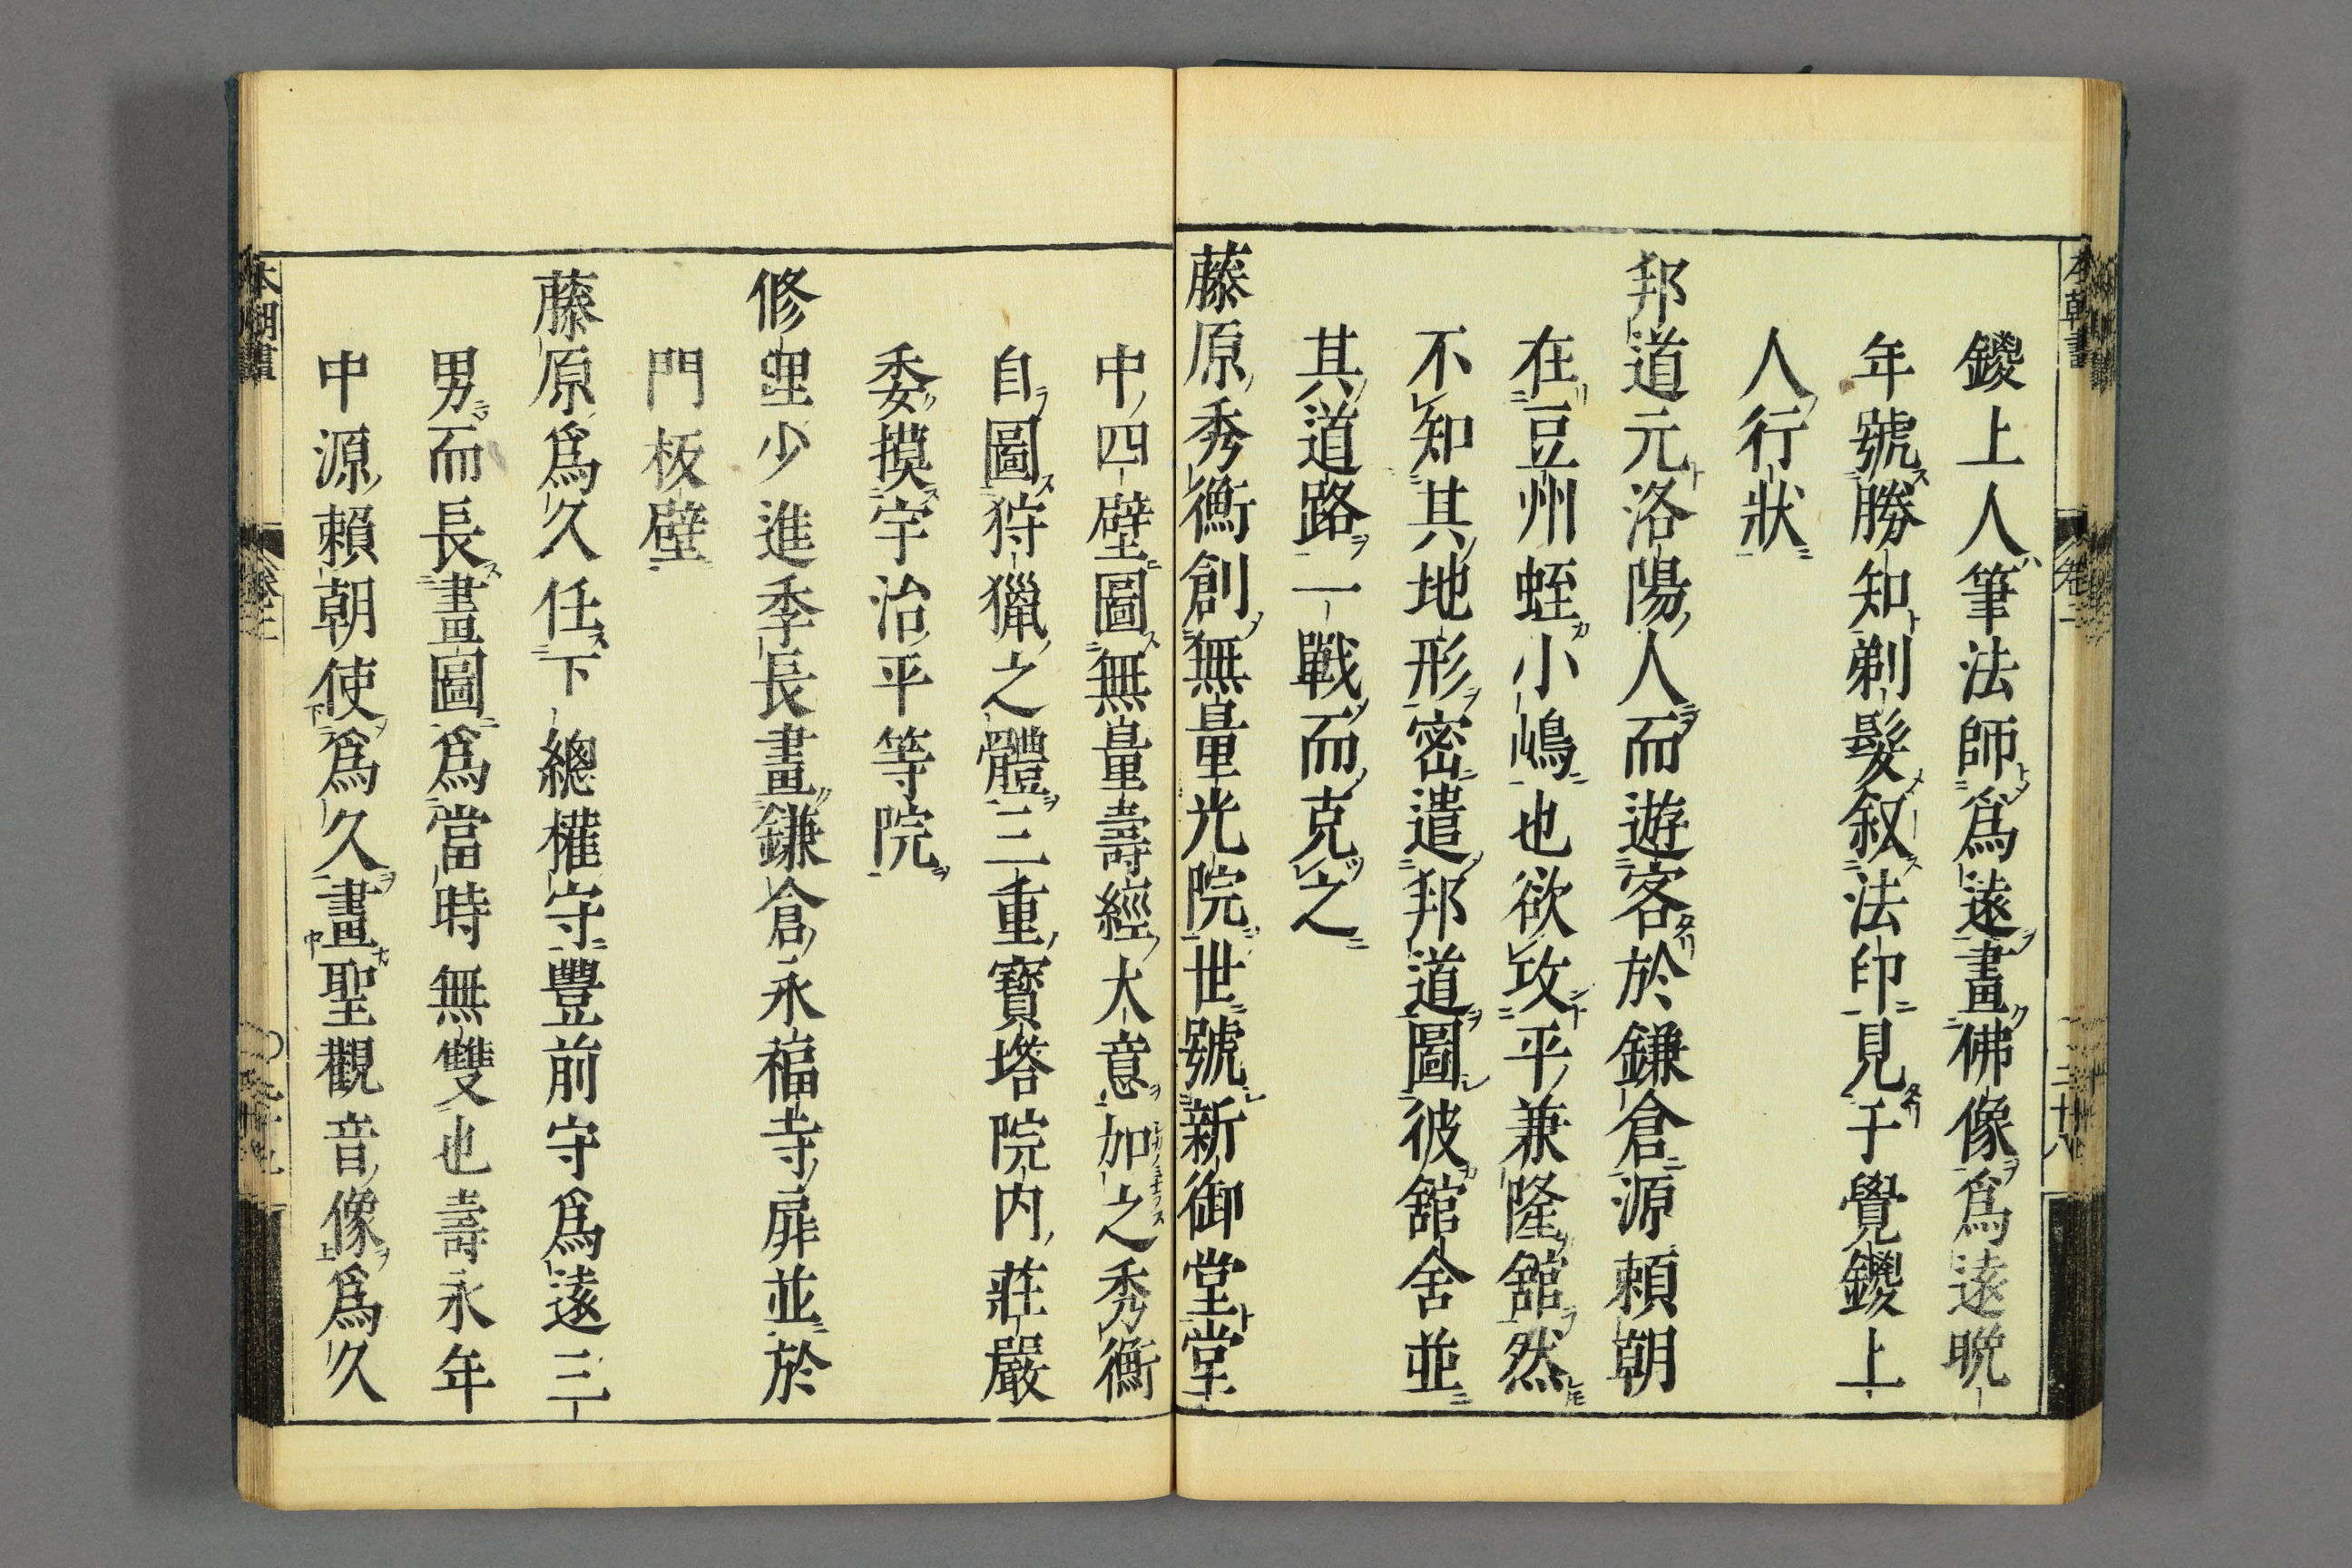 鑁上人筆法師爲遠畫佛像爲遠晩
年號勝知剃髮叙法印見于覺鑁上
人行狀
邦道元洛陽人而遊客於鎌倉源頼朝
在豆州蛭小嶋也欲攻平兼隆舘然
不知其地形密遣邦道圖彼舘舍並
其道路一戰而克之
藤原秀衡創無量光院世號新御堂堂
中四壁圖無量壽經大意加之秀衡
自圖狩獵之體三重寳塔院内莊嚴
委摸宇治平等院
修理少進季長畫鎌倉永福寺扉並於
門板壁
藤原爲久任下總權守豐前守爲遠三
男而長畫圖爲當時無雙也壽永年
中源賴朝使爲久畫聖觀音像爲久